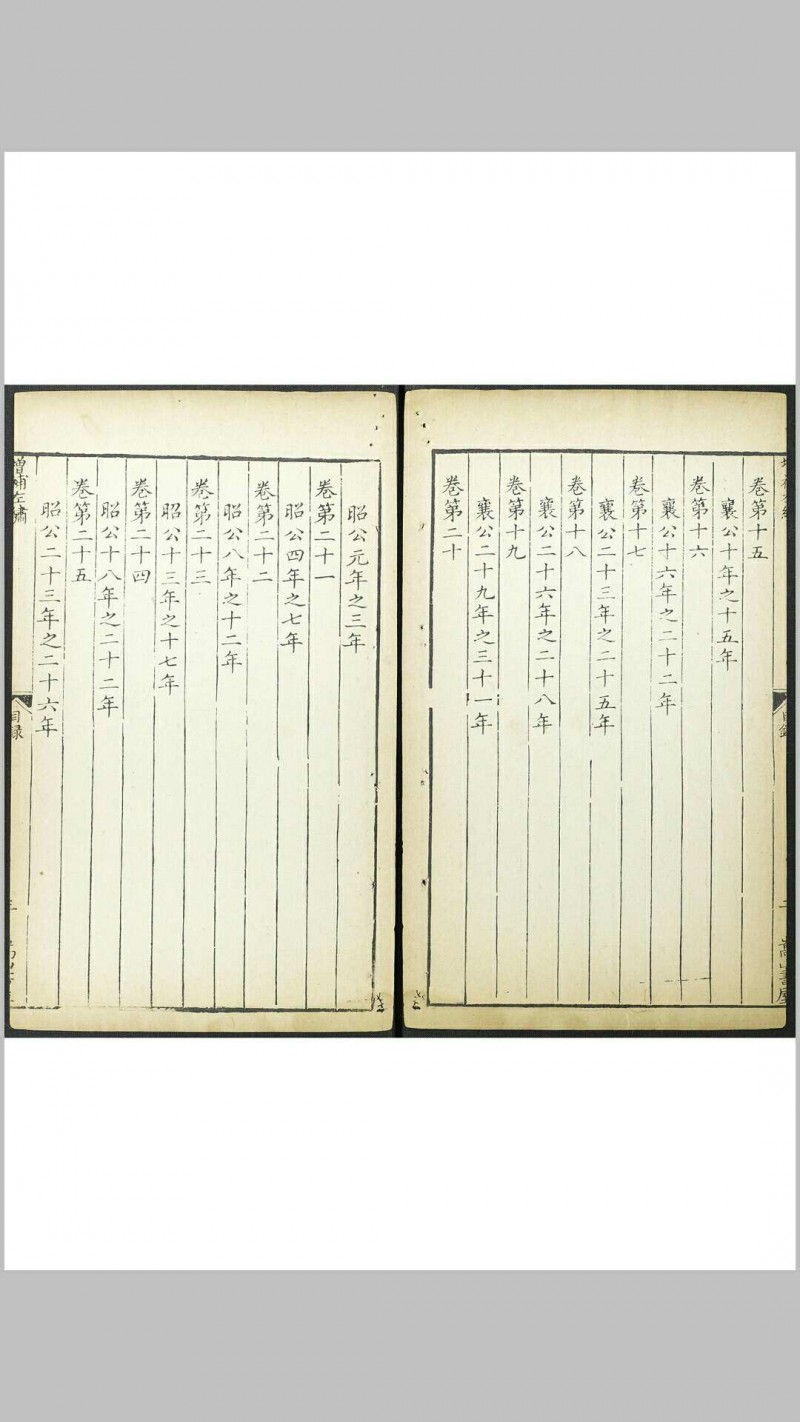 卷第十五
襄公十年之十五年
卷第十六
襄公十六年之二十二年
卷第十七
襄公二十三年之二十五年
卷第十八
襄公二十六年之二十八年
卷第十九
襄公二十九年之三十一年
卷第二十
昭公元年之三年
卷第二十一
昭公四年之七年
卷第二十二
昭公八年之十二年
卷第二十三
昭公十三年之十七年
卷第二十四
昭公十八年之二十二年
卷第二十五
昭公二十三年之二十六年
增補左繡
目录